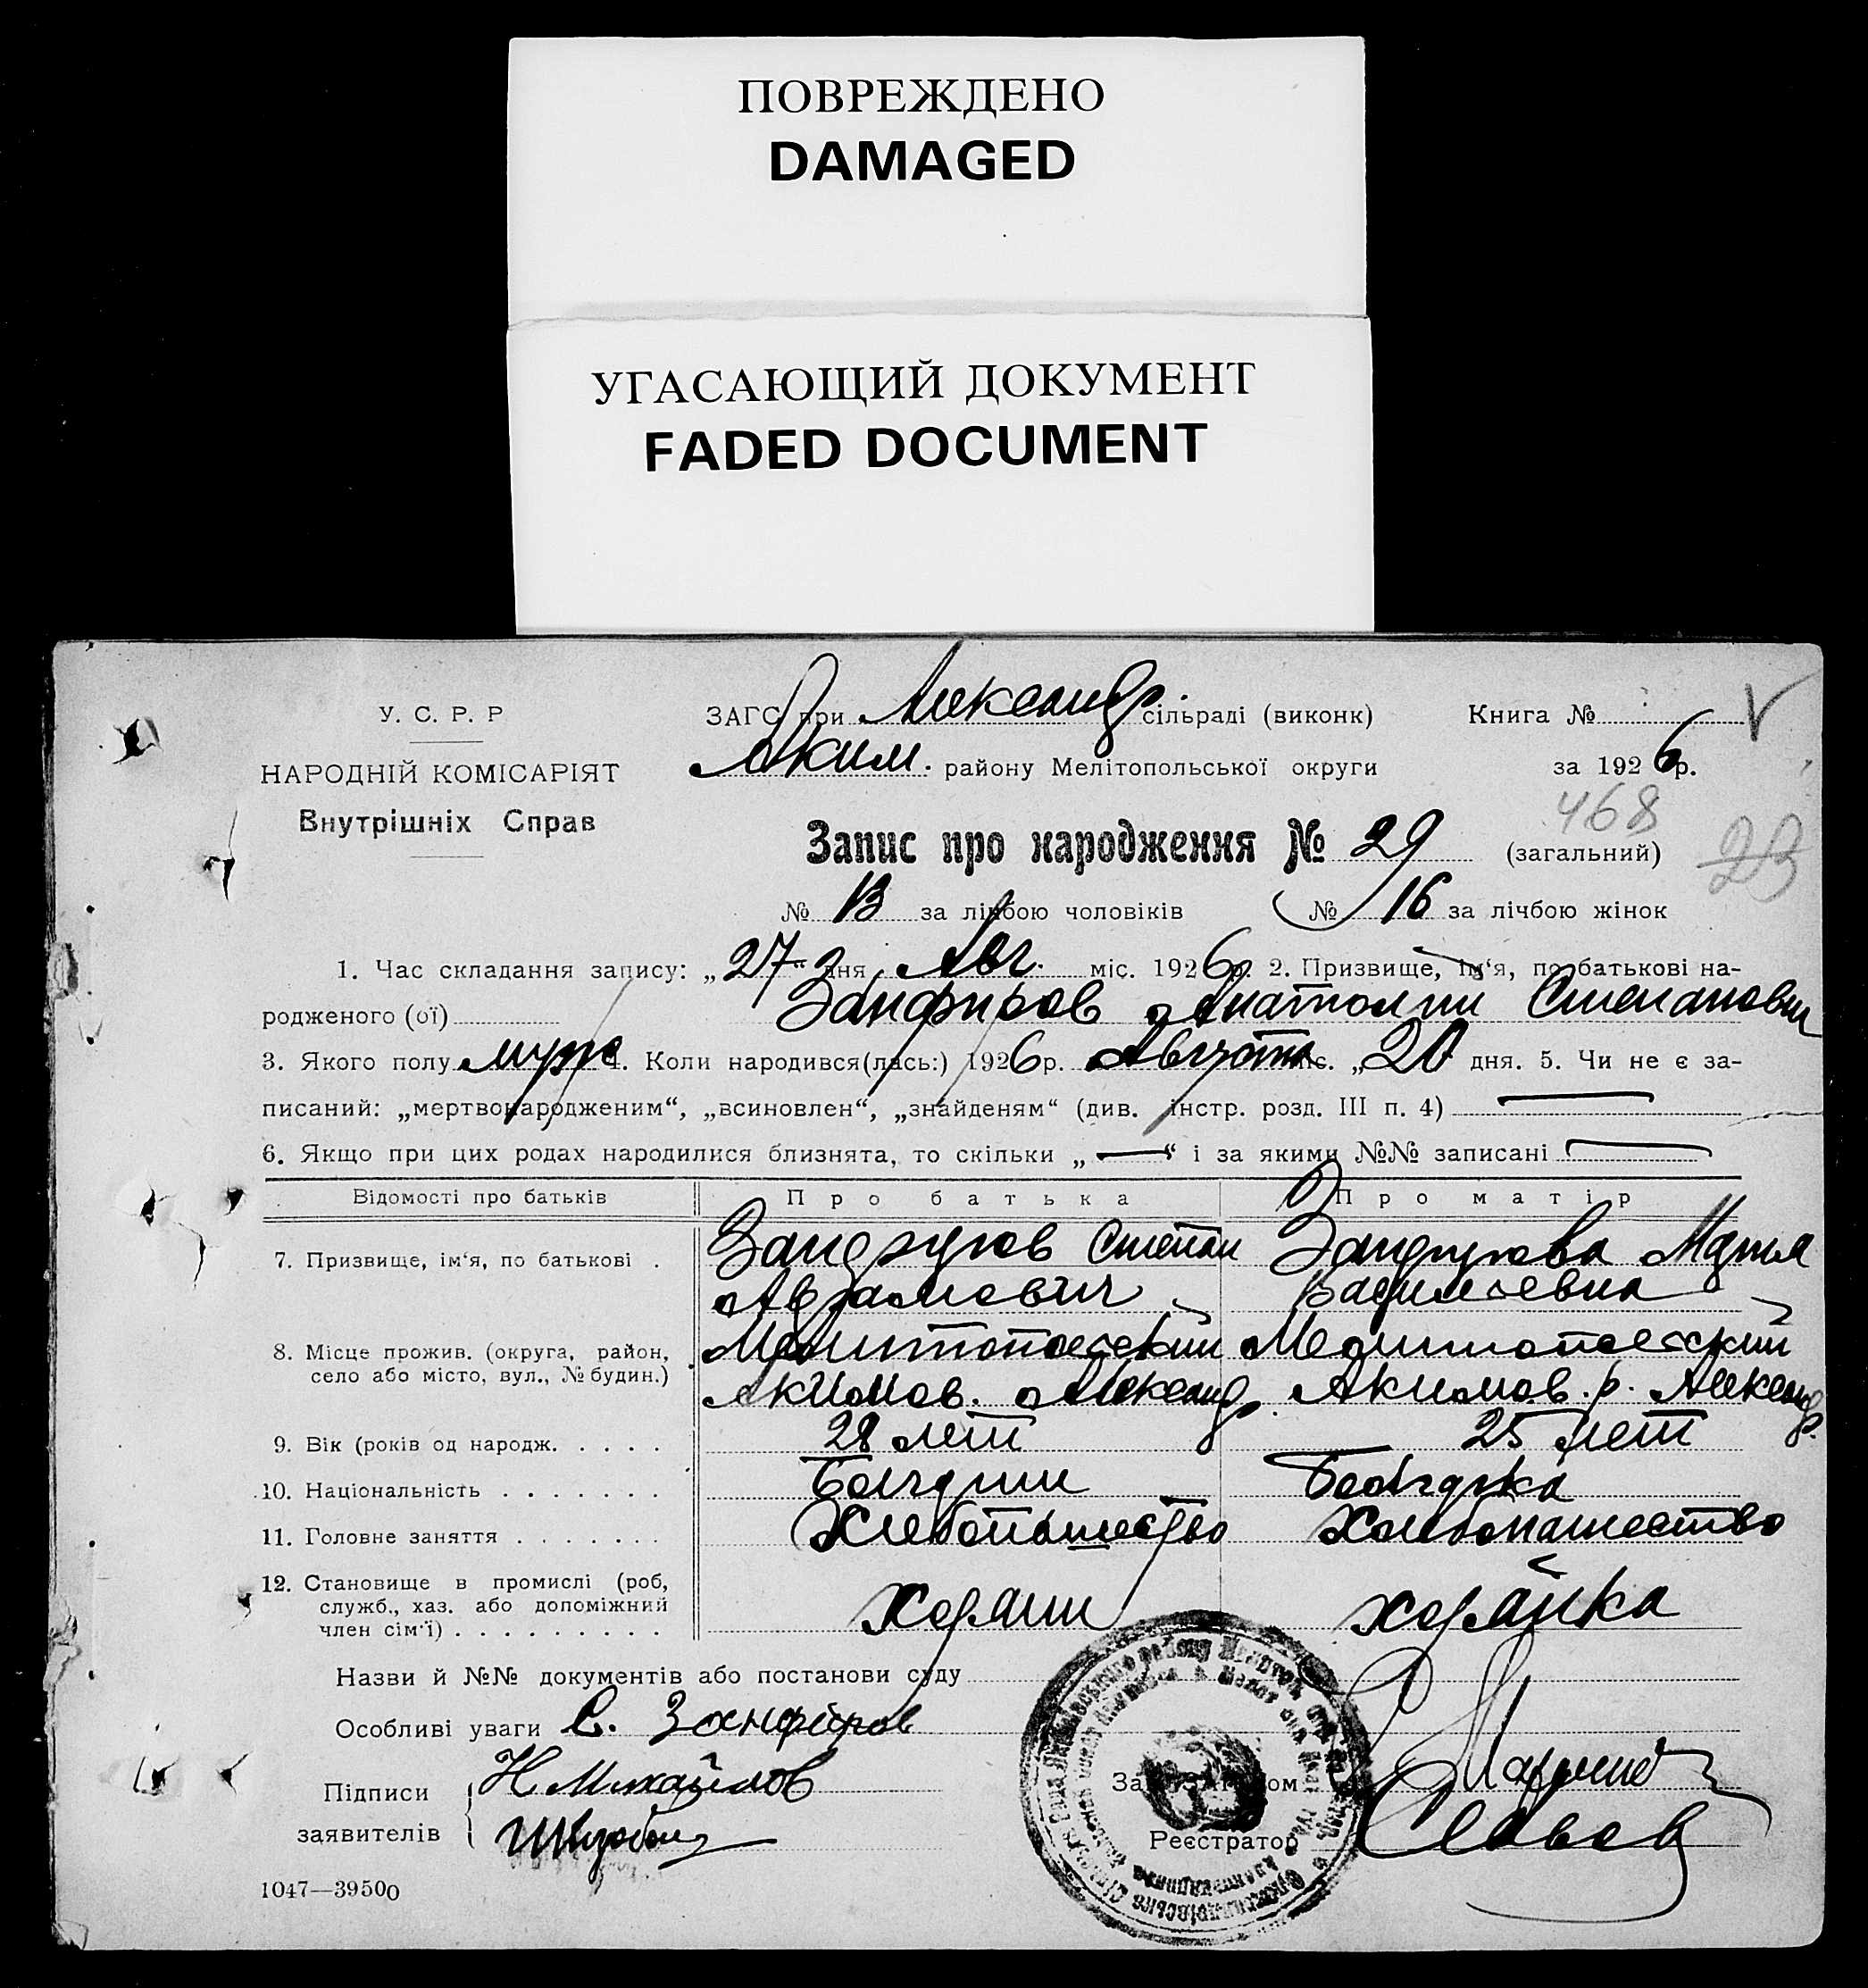 ПОВРЕЖДЕНО
DAMAGED
УГАСАЮЩИЙ ДОКУМЕНТ
FADED DOCUMENT
У. С. Р. Р
НАРОДНІЙ КОМІСАРІЯТ
Внутрішніх Справ
ЗАГС при Александр. сільраді (виконк) Книга №
Аким. району Мелітопольської округи за 1926 р.
468
Запис про народження № 29 (загальний) 23
№ 13 за лічбою чоловіків № 16 за лічбою жінок
1. Час складання запису: „27“ дня Авг. міс. 1926 р. 2. Призвище, ім‘я, по батькові на-
родженого (ої) Занфиров Анатолий Степанович
3. Якого полу муж 4. Коли народився(лась:) 1926 р. Августа міс. „20 дня. 5. Чи не є за-
писаний: „мертвонародженим“, „всиновлен“, „знайденям“ (див. інстр. розд. III п. 4)
6. Якщо при цих родах народилися близнята, то скільки „—“ і за якими №№ записані
Відомості про батьків Про батька Про матір
7. Призвище, ім‘я, по батькові . Степан Мария
Аврамович Васильевна
8. Місце прожив. (округа, район, Мелитопольский Мелитопольский
село або місто, вул., № будин.) Акимов. Александ. Акимов. р. Александр.
9. Вік (років од народж. . . . . 28 лет 25 лет
10. Національність . . . . . . . Болгарин Болгарка
11. Головне заняття . . . . . . . Хлебопашество Хлебопашество
12. Становище в промислі (роб,
служб., хаз. або допоміжний
член сім‘ї) . . . . . . . . . Хозяин хозяйка
Назви й №№ документів або постанови суду
Особливі уваги С. Занфиров
Підписи Н Михайлов
заявителів
Зав. ЗАГСом
Реєстратор Славов
1047—39500